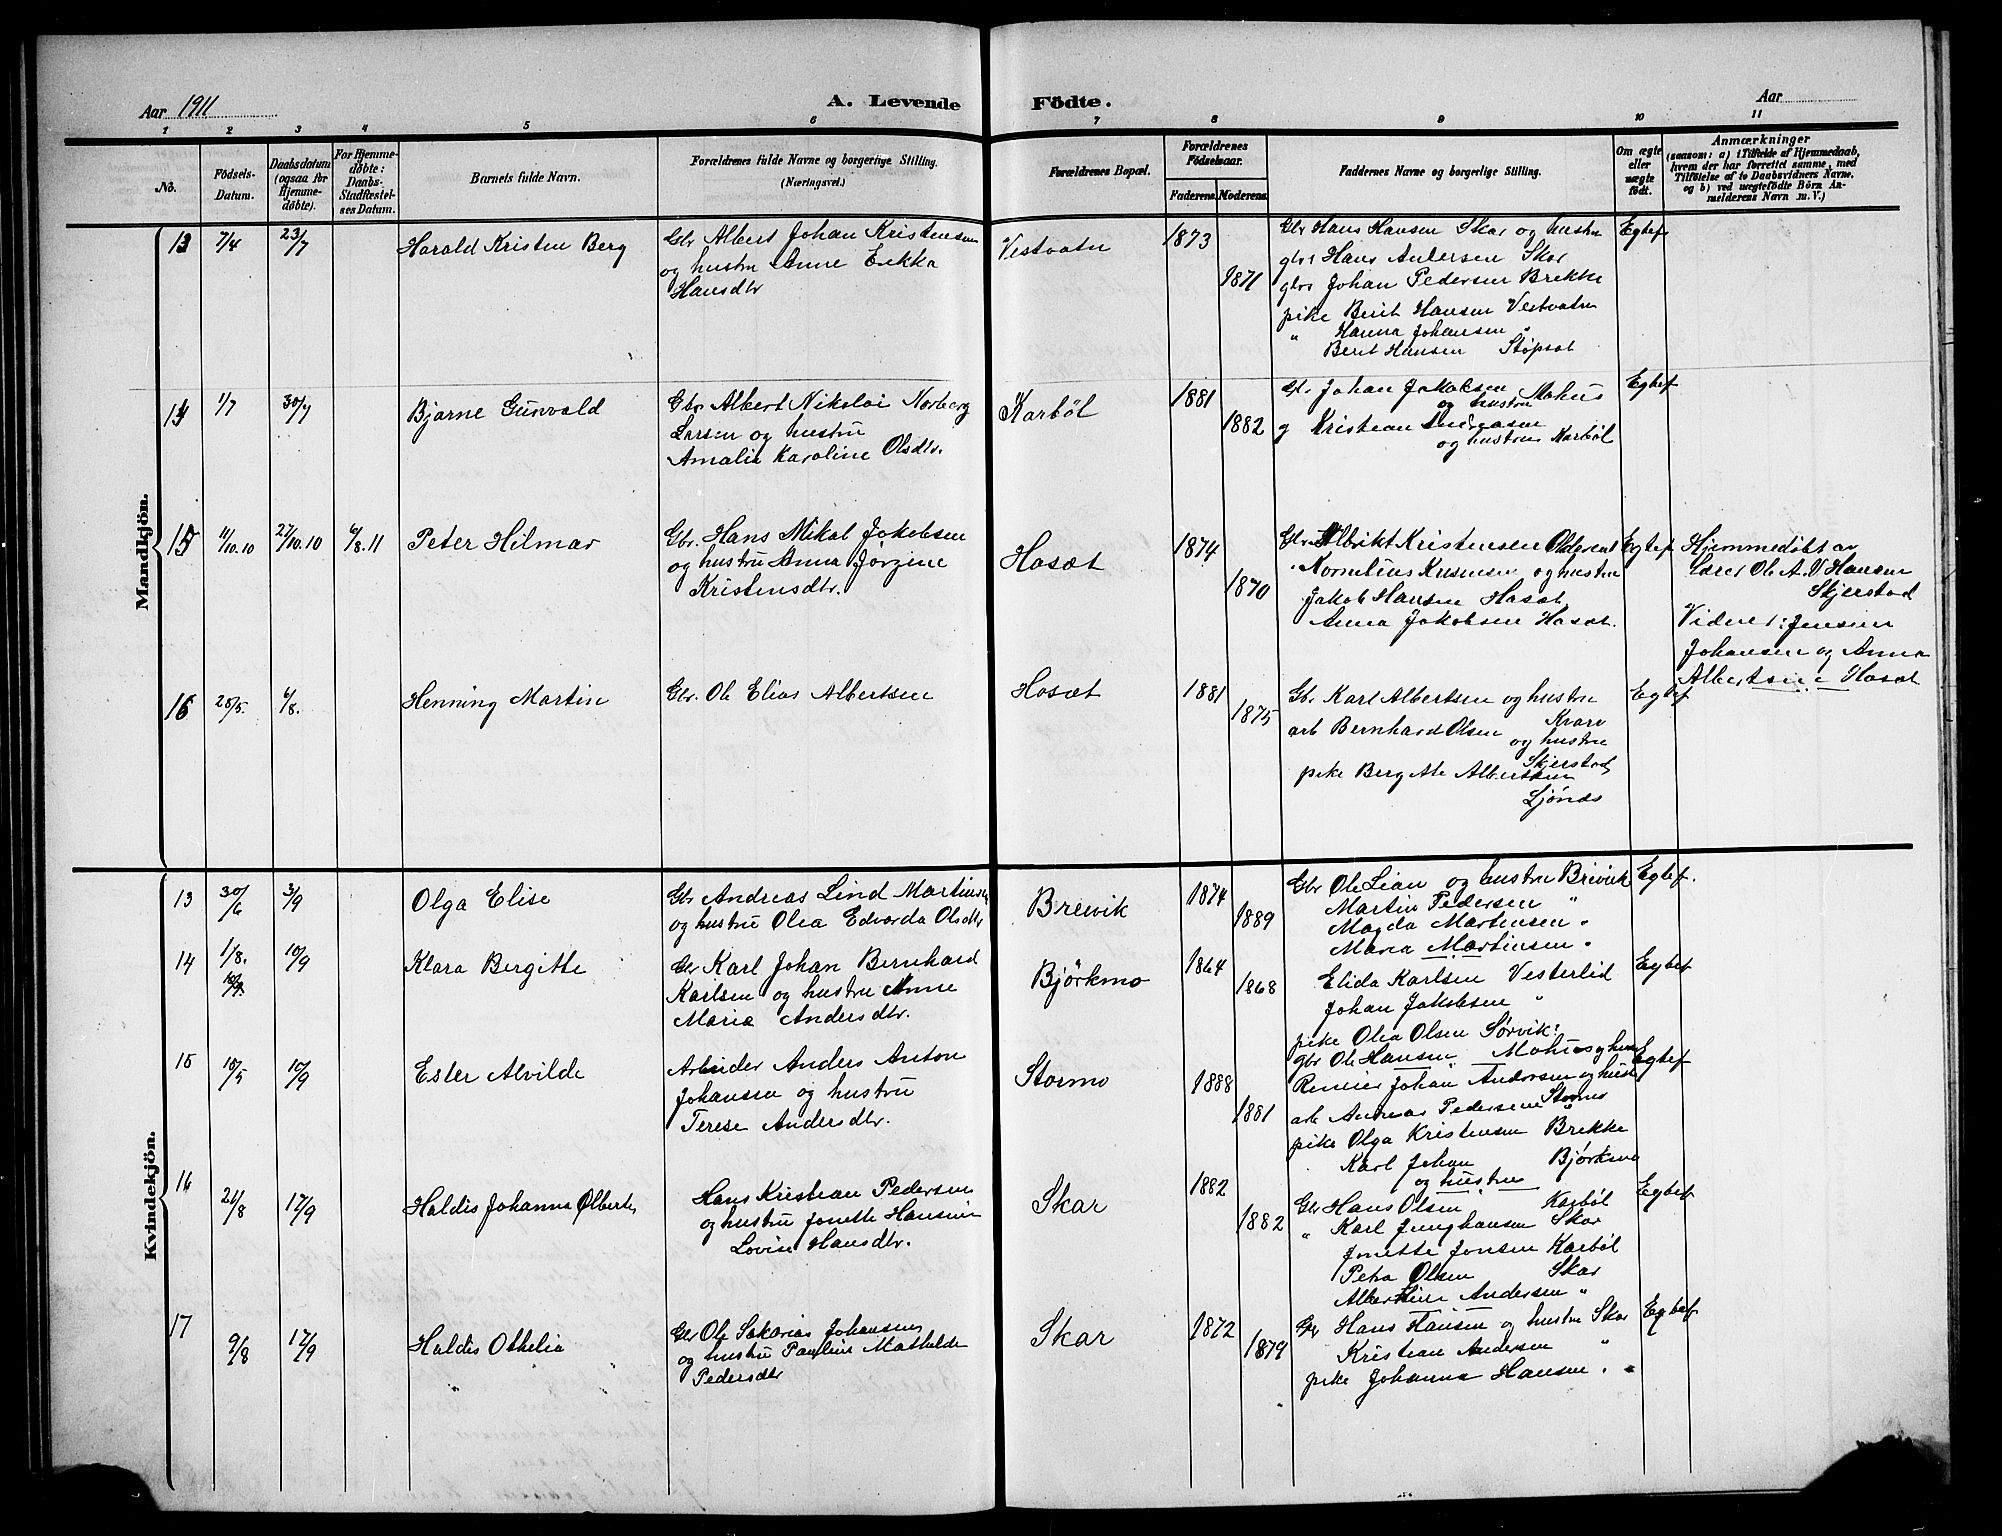 Aar 1911
A. Levende Födte.
Aar
1 2 3 4 5 6 7 8 9 10 11
No.
Födsels-Datum.
Daabsdatum (ogsaa for Hjemme-döbte).
For Hjemme-döbte: Daabs-Stadfæstel-ses Datum.
Barnets fulde Navn.
Forældrenes fulde Navne og borgerlige Stilling.
(Næringsvei.)
Forældrenes Bopæl.
Forældrenes Födselsaar.
Faderens. Moderens.
Faddernes Navne og borgerlige Stilling.
Om ægte eller uægte födt.
Anmærkninger
(saasom: a) i Tilfælde af Hjemmedaab,
hvem der har forrettet samme, med
Tilföielse af to Daabsvidners Navne,
og b) ved uægtefödte Börn An-
melderens Navn m. V.)
Mandkjön.
13 7/4 23/7 Harald Kristen Berg
Gbr Albert Johan Kristensen
og hustru Anne Erikka
Hansdtr
Vestvatn 1873 1871
Gbr Hans Hansen Skar og hustru
gbr Hans Andersen Skar
gbr Johan Pedersen Brekke
pike Berit Hansen Vestvatn
" Hanna Johansen "
Berit Hansen Støpset
Egtef
14 1/7 30/7 Bjarne Gunvald
Gbr Albert Nikolai Norberg
Larsen og hustru
Amalie Karoline Olsdtr.
Karbøl 1881 1882
Gbr Johan Jakobsen Mohus
og hustru
g Kristian Andreasen
og hustru Karbøl
Egtef
15 11/10.10 27/10.10 6/8.11 Peter Hilmar
Gbr. Hans Mikal Jakobsen
og hustru Anna Jørgine
Kristensdtr.
Hasæt 1874 1870
Gbr Albrikt Kristensen Oldereid
Kornelius Kristensen og hustru
Jakob Hansen Hasæt
Anna Jakobsen Hasæt.
Egtef
Hjemmedøbt av
lærer Ole A. V Hansen
Skjerstad
Vidner: Jensine
Johansen og Anna
Albertsen Hasæt
16 28/5. 6/8. Henning Martin
Gbr. Ole Elias Albertsen
Hasæt 1881 1875
Gb. Karl Albertsen og hustru
Kvarv
arb Bernhard Olsen
og hustru
Skjerstad
pike Bergitte Albertsen
Ljønes
Egtef
Kvindekjön.
13 30/6 3/9 Olga Elise
Gbr Andreas Lind Martinsen
og hustru Olea Edvarda Olsdtr
Breivik 1874 1889
Gbr Ole Lian og hustru Breivik
Martin Pedersen "
Magda Martinsen "
Maria Martinsen "
Egtef.
14 1/8. 10/9 Klara Bergitte
Gbr Karl Johan Bernhard
Karlsen og hustru Anne
Maria Andersdtr.
Bjørkmo 1864 1868
Elida Karlsen Vesterlid
Johan Jakobsen "
pike Olea Olsen Sørvik
Egtef
15 10/5 10/9 Ester Alvilde
Arbeider Anders Anton
Johansen og hustru
Terese Andersdtr.
Stormo 1888 1881
gbr Ole Hansen Mohus og hustru
Johan Andersen og hustru
arb Andreas Pedersen
pike Olga Kristensen Brekke
Karl Johan Bjørkmo
og hustru
Egtef
16 21/8 17/9 Haldis Johanna Olberte
Hans Kristian Pedersen
og hustru Jonette Hansine
Lovise Hansdtr.
Skar 1882 1882
Gbr Hans Olsen Karbøl
" Karl Junghansen Skar
Jonette Jonsen Karbøl
Petra Olsen Skar
Albertine Andersen "
Egtef
17 9/8 17/9 Haldis Othelie
Gbr Ole Sakarias Johansen
og hustru Pauline Mathilde
Pedersdtr
Skar 1872 1879
Gbr Hans Hansen og hustru Skar
Kristian Andersen "
pike Johanna Hansen. "
Egtef